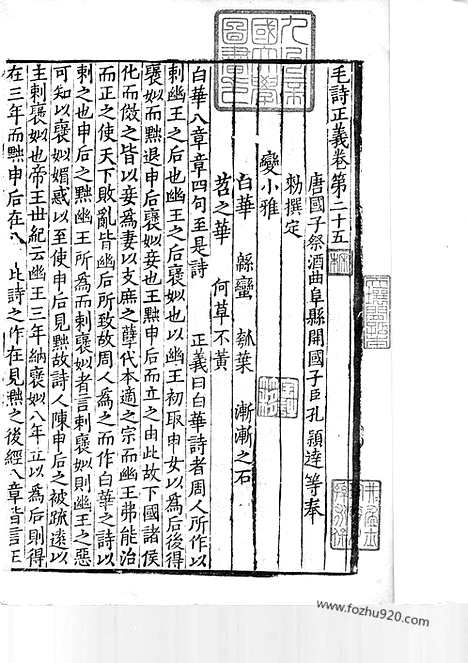 毛詩正義卷第二十五
唐國子祭酒曲阜縣開國子臣孔穎達等奉
勑撰定
變小雅
白華 緜蠻 瓠葉 漸漸之石
苕之華 何草不黃
白華八章章四句至是詩 正義曰白華詩者周人所作以
刺幽王之后也幽王之后襃姒也以幽王初取申女以爲后後得
襃姒而黜退申后襃姒妾也王黜申后而立之由此故下國諸侯
化而傚之皆以妾爲妻以支庶之孽代本適之宗而幽王弗能治
而正之使天下敗亂皆幽后所致故周人爲之而作白華之詩以
刺之也申后之黜幽王所爲而刺襃姒者言刺襃姒則幽王之惡
可知以襃姒媚惑以至使申后見黜故詩人陳申后之被疏遠以
主刺襃姒也帝王世紀云幽王三年納襃姒八年立以爲后則得
在三年而黜申后在八 此詩之作在見黜之後經八章皆言王
www.fozhu920.com